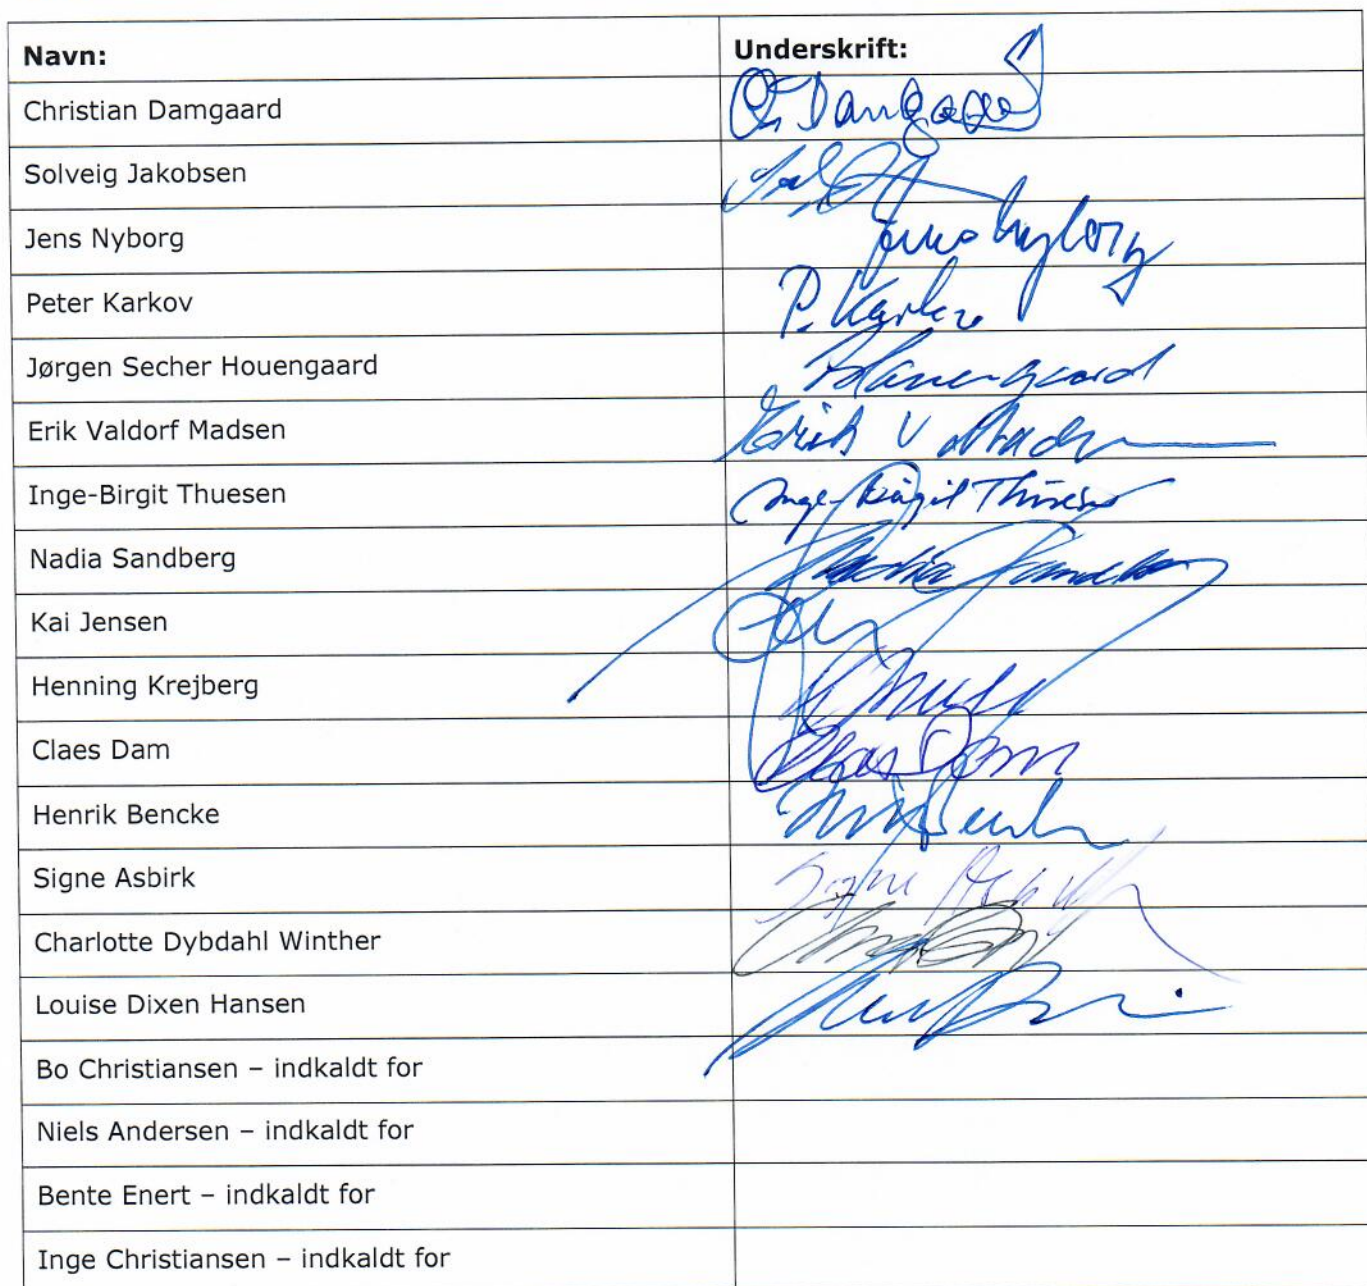 Navn: Underskrift:
Christian Damgaard Damgaard
Solveig Jakobsen
Jens Nyborg Nyborg
Peter Karkov P. Karkov
Jørgen Secher Houengaard
Erik Valdorf Madsen Erik V
Inge-Birgit Thuesen Inge-Birgit Thuesen
Nadia Sandberg Nadia Sandberg
Kai Jensen
Henning Krejberg
Claes Dam Claes Dam
Henrik Bencke
Signe Asbirk Signe Asbirk
Charlotte Dybdahl Winther
Louise Dixen Hansen
Bo Christiansen – indkaldt for
Niels Andersen – indkaldt for
Bente Enert – indkaldt for
Inge Christiansen – indkaldt for